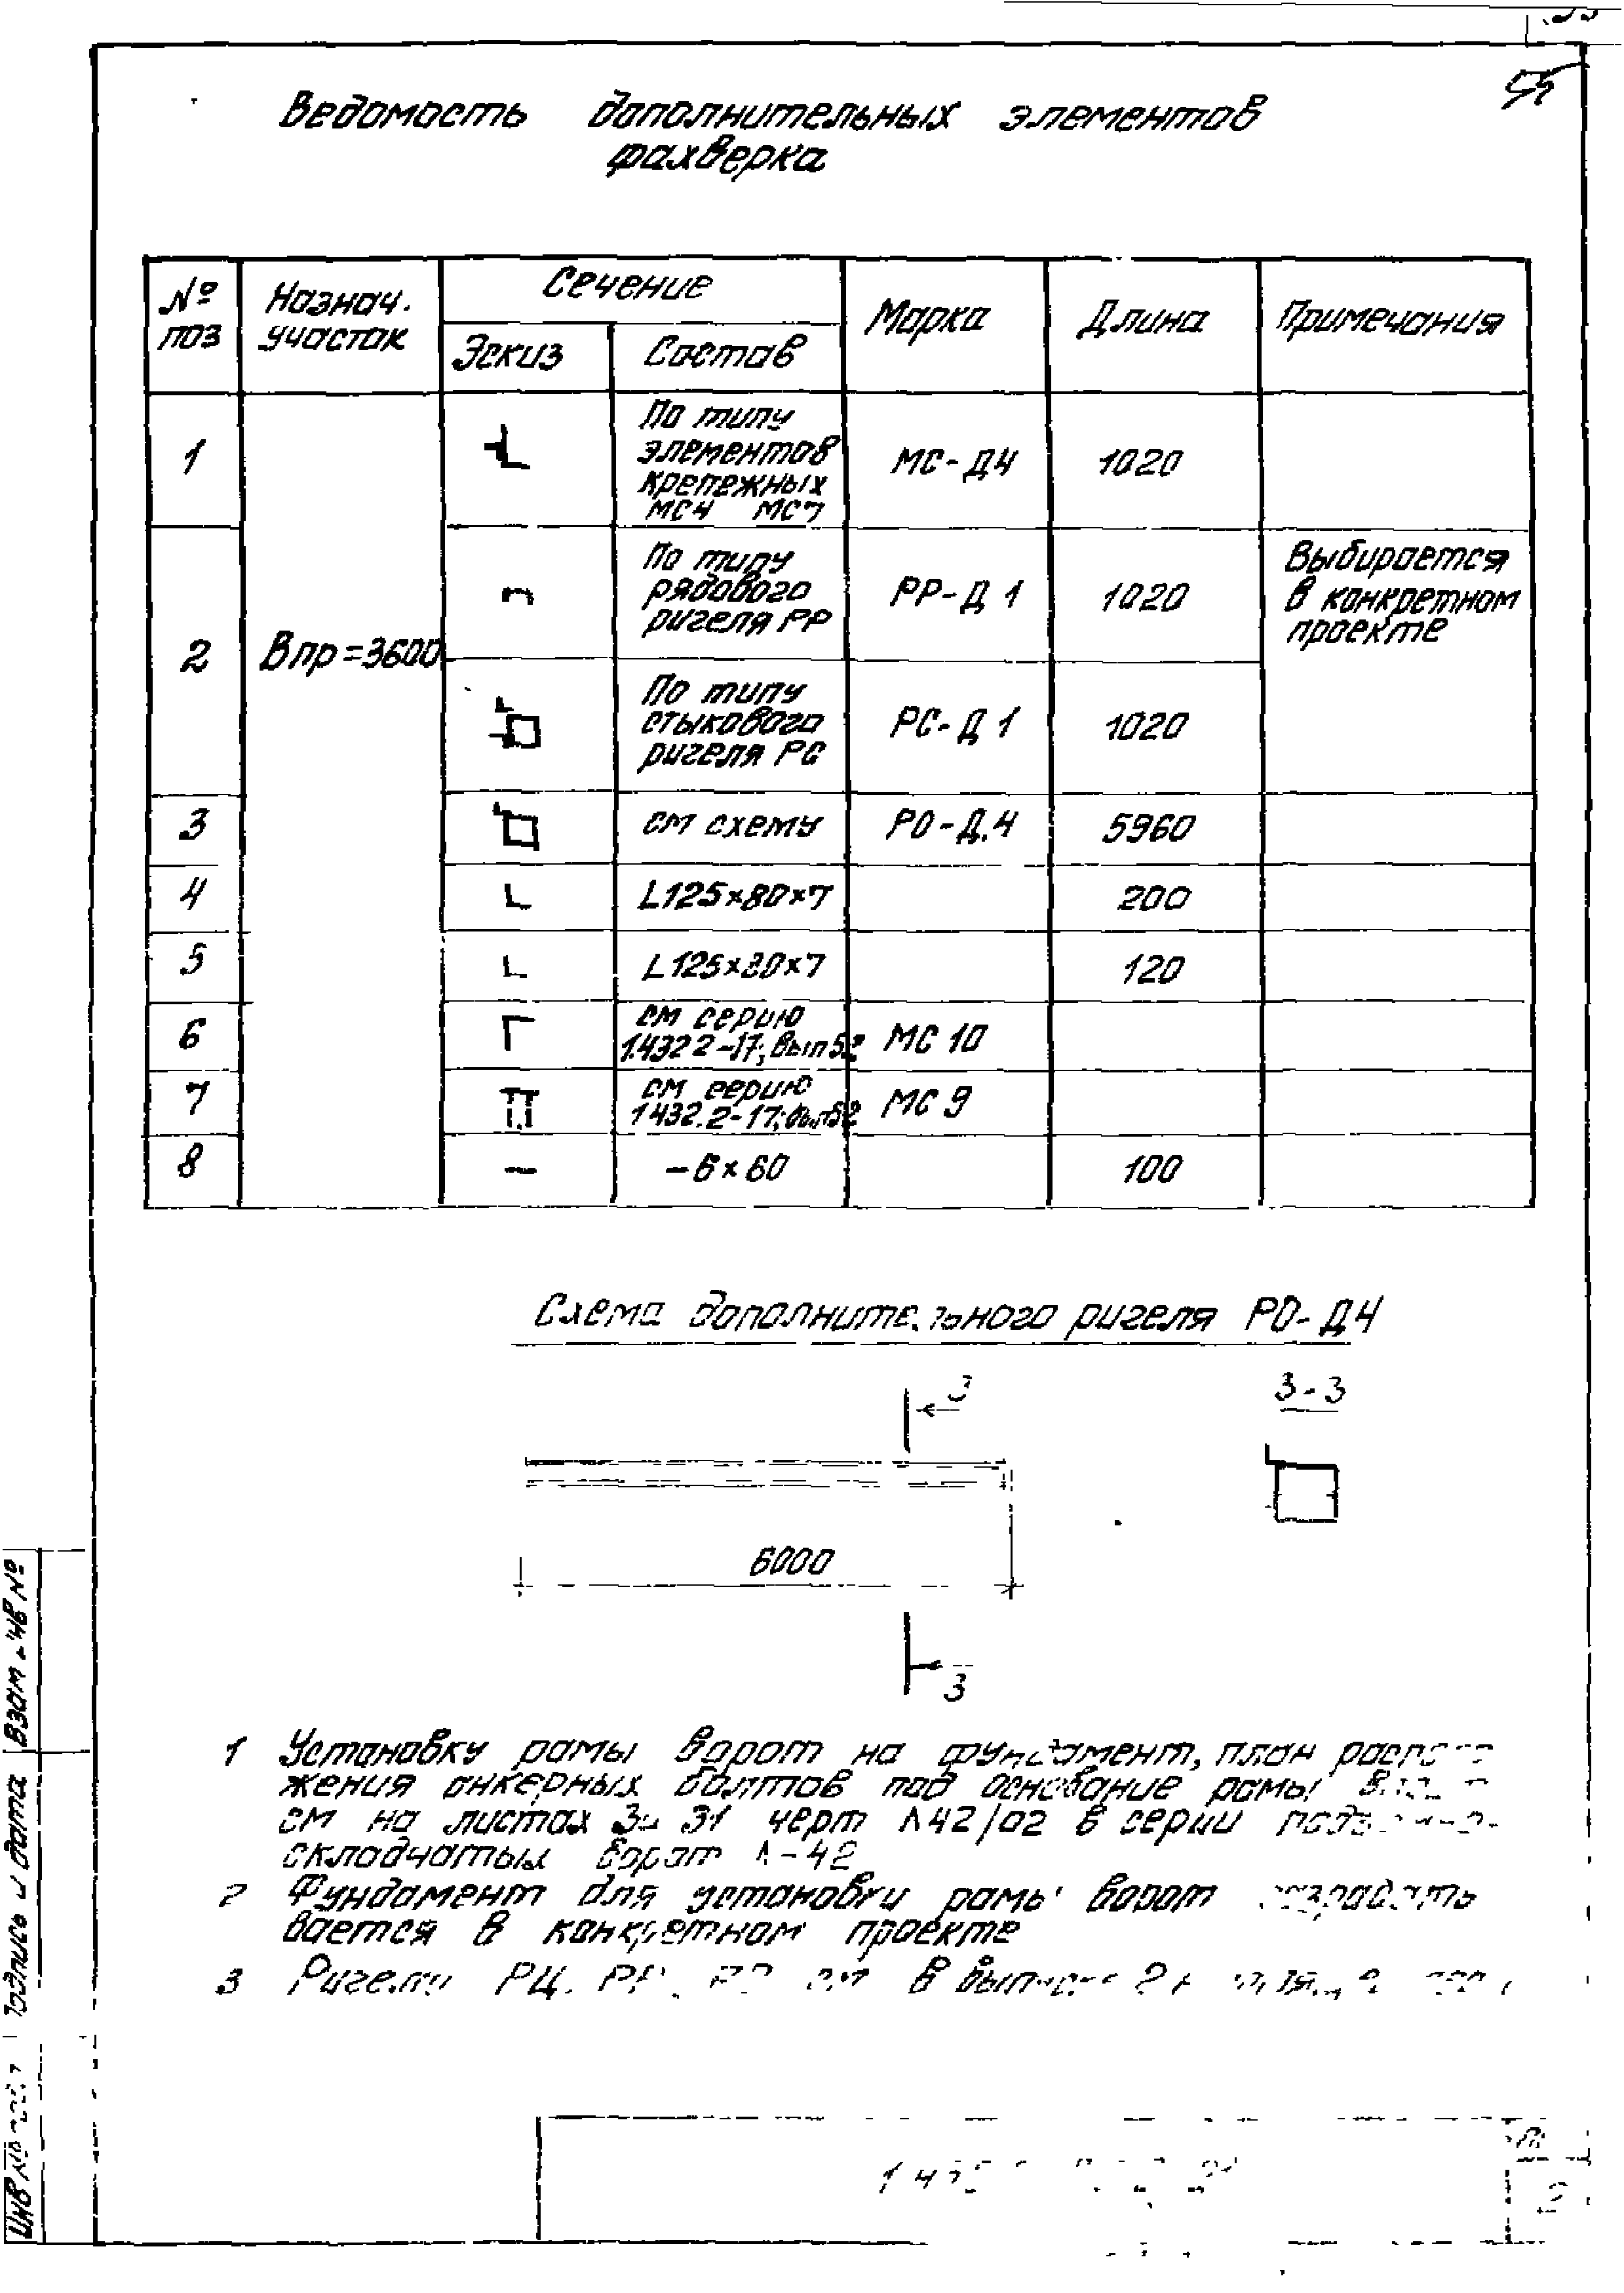 Ведомость дополнительных элементов
фахверка
№ поз
Назнач. участок
Сечение
Эскиз
Состав
Марка
Длина
Примечания
1
По типу
элементов
крепежных
МС4 МС7
МС-Д4
1020
2
Впр=3600
По типу
рядового
ригеля РР
РР-Д1
1020
Выбирается
в конкретном
проекте
По типу
стыкового
ригеля РС
РС-Д1
1020
3
см схему
РО-Д.4
5960
4
L125×80×7
200
5
L125×80×7
120
6
см серию
1.432 2-17; вып 5.2
МС 10
7
см серию
1 432.2-17; вып 52
МС 9
8
-6×60
100
Схема дополнительного ригеля РО-Д4
3
3-3
6000
3
1 Установку рамы ворот на фундамент, план
жения анкерных болтов под основание рамы
см на листах 31 черт Л42/02 в серии
складчатых ворот Л-42
2 Фундамент для установки рамы ворот разрабаты
вается в конкретном проекте
3 Ригели РЦ, РР, в выпуске
Взам инв №
Подпись и дата
Инв №